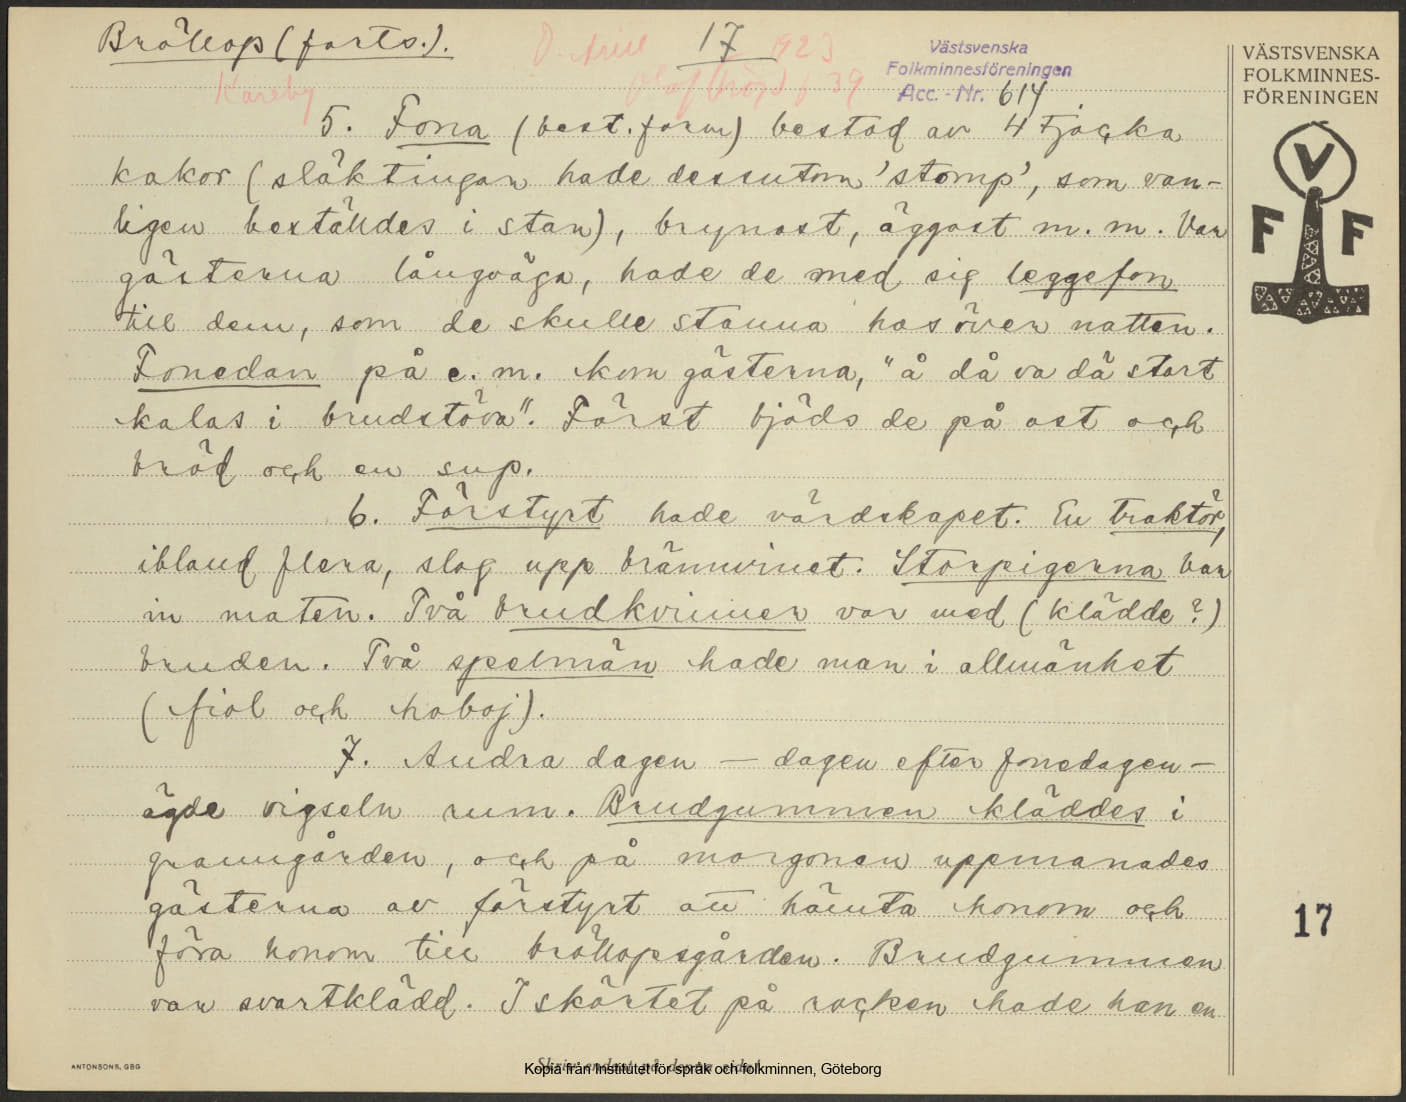 Bröllop (forts.).
17
1923
Kareby
Västsvenska
Folkminnesföreningen
Acc. - Nr. 614
VÄSTSVENSKA
FOLKMINNES-
FÖRENINGEN
V
F F
5. Fona (best. form) bestod av 4 tjocka
kakor (släktingar hade dessutom 'stomp', som van-
ligen beställdes i stan), brynost, äggost m. m. Var
gästerna långväga, hade de med sig leggefon
till dem, som de skulle stanna hos över natten.
Fonedan på e. m. kom gästerna, "å då va dä stort
kalas i brudstöva". Först bjöds de på ost och
bröd och en sup.
6. Förstyrt hade värdskapet. En traktör,
ibland flera, slog upp brännvinet. Storpigerna bar
in maten. Två brudkvinner var med (klädde?)
bruden. Två spelmän hade man i allmänhet
(fiol och hoboj).
7. Andra dagen — dagen efter fonedagen -
ägde vigseln rum. Brudgummen kläddes i
granngården, och på morgonen uppmanades
gästerna av förstyrt att hämta honom och
föra honom till bröllopsgården. Brudgummen
var svartklädd. I skörtet på rocken hade han en
17
ANTONSONS, GBG
Kopia från Institutet för språk och folkminnen, Göteborg